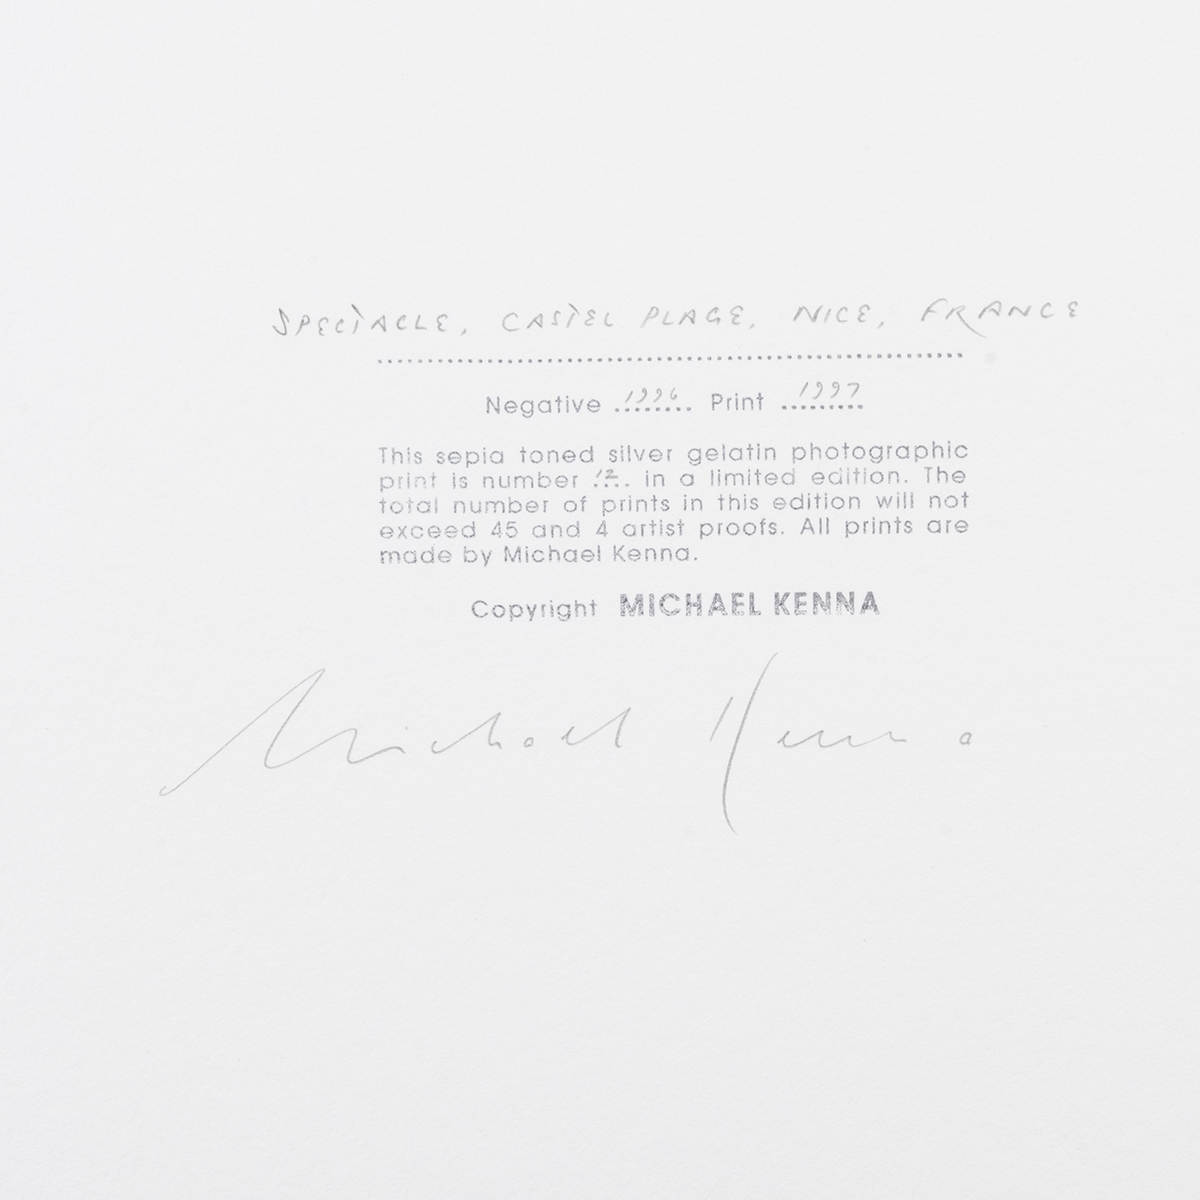 SPECTACLE, CASTEL PLAGE, NICE, FRANCE
Negative 1996 Print 1997
This sepia toned silver gelatin photographic
print is number 12 in a limited edition. The
total number of prints in this edition will not
exceed 45 and 4 artist proofs. All prints are
made by Michael Kenna.
Copyright MICHAEL KENNA
Michael Kenna